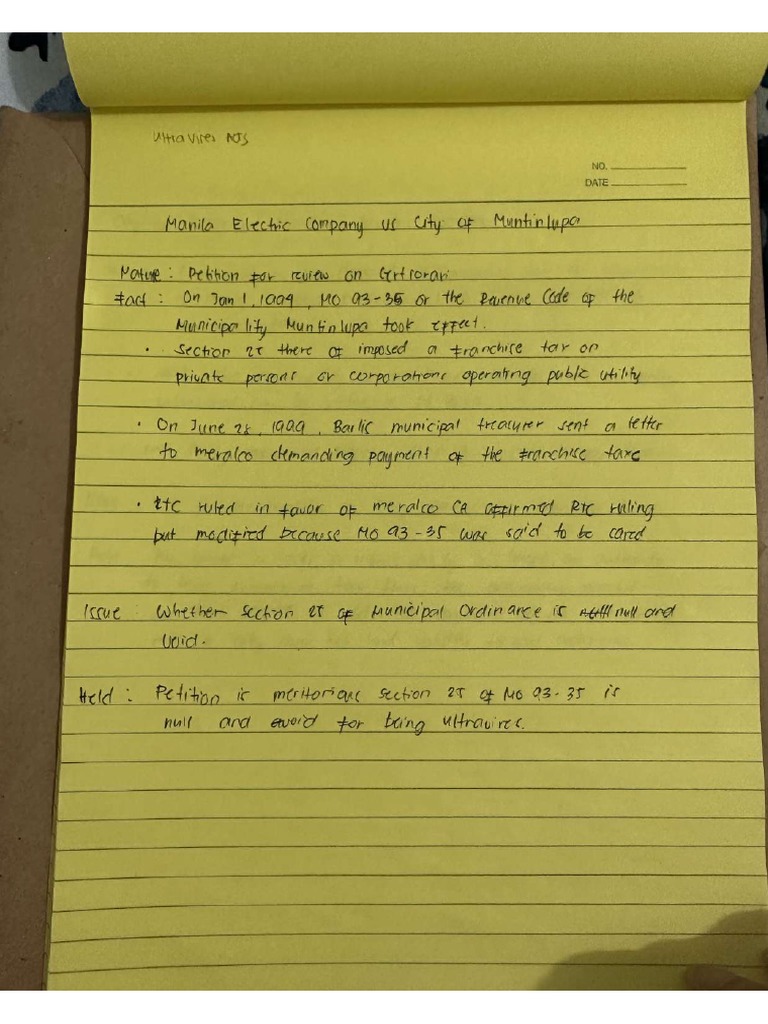 Ultra Vires Acts
NO.
DATE
Manila Electric Company vs City of Muntinlupa
Nature : Petition for review on Certiorari
Fact : On Jan 1, 1994, MO 93-35 or the Revenue Code of the
Municipality Muntinlupa took effect.
• Section 25 there of imposed a franchise tax on
private persons or corporations operating public utility
• On June 28, 1999, Barlic municipal treasurer sent a letter
to meralco demanding payment of the franchise taxe
• RTC ruled in favor of meralco CA affirmed RTC ruling
but modified because MO 93-35 was said to be cared
Issue : Whether section 25 of Municipal Ordinance is null and
void.
Held : Petition is meritorious section 25 of MO 93-35 is
null and void for being ultravires.